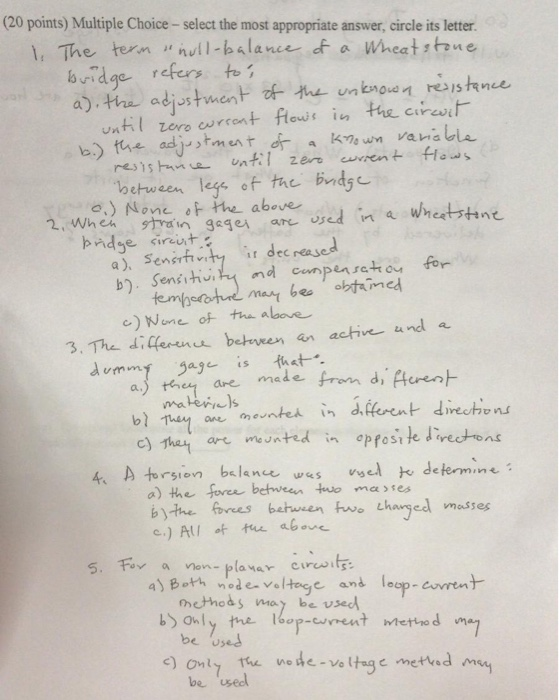 (20 points) Multiple Choice – select the most appropriate answer, circle its letter.
1. The term "null-balance of a Wheatstone
bridge refers to:
a). the adjustment of the unknown resistance
until zero current flows in the circuit
b.) the adjustment of a known variable
resistance until zero current flows
between legs of the bridge
c.) None of the above
2. When strain gages are used in a Wheatstone
bridge circuit:
a). Sensitivity is decreased
b). Sensitivity and compensation for
temperature may bee obtained
c) None of the above
3. The difference between an active and a
dummy gage is that:
a.) they are made from different
materials
b) They are mounted in different directions
c) They are mounted in opposite directions
4. A torsion balance was used to determine:
a) the force between two masses
b) the forces between two charged masses
c.) All of the above
5. For a non-planar circuits:
a) Both node-voltage and loop-current
methods may be used
b) Only the loop-current method may
be used
c) Only the node-voltage method may
be used